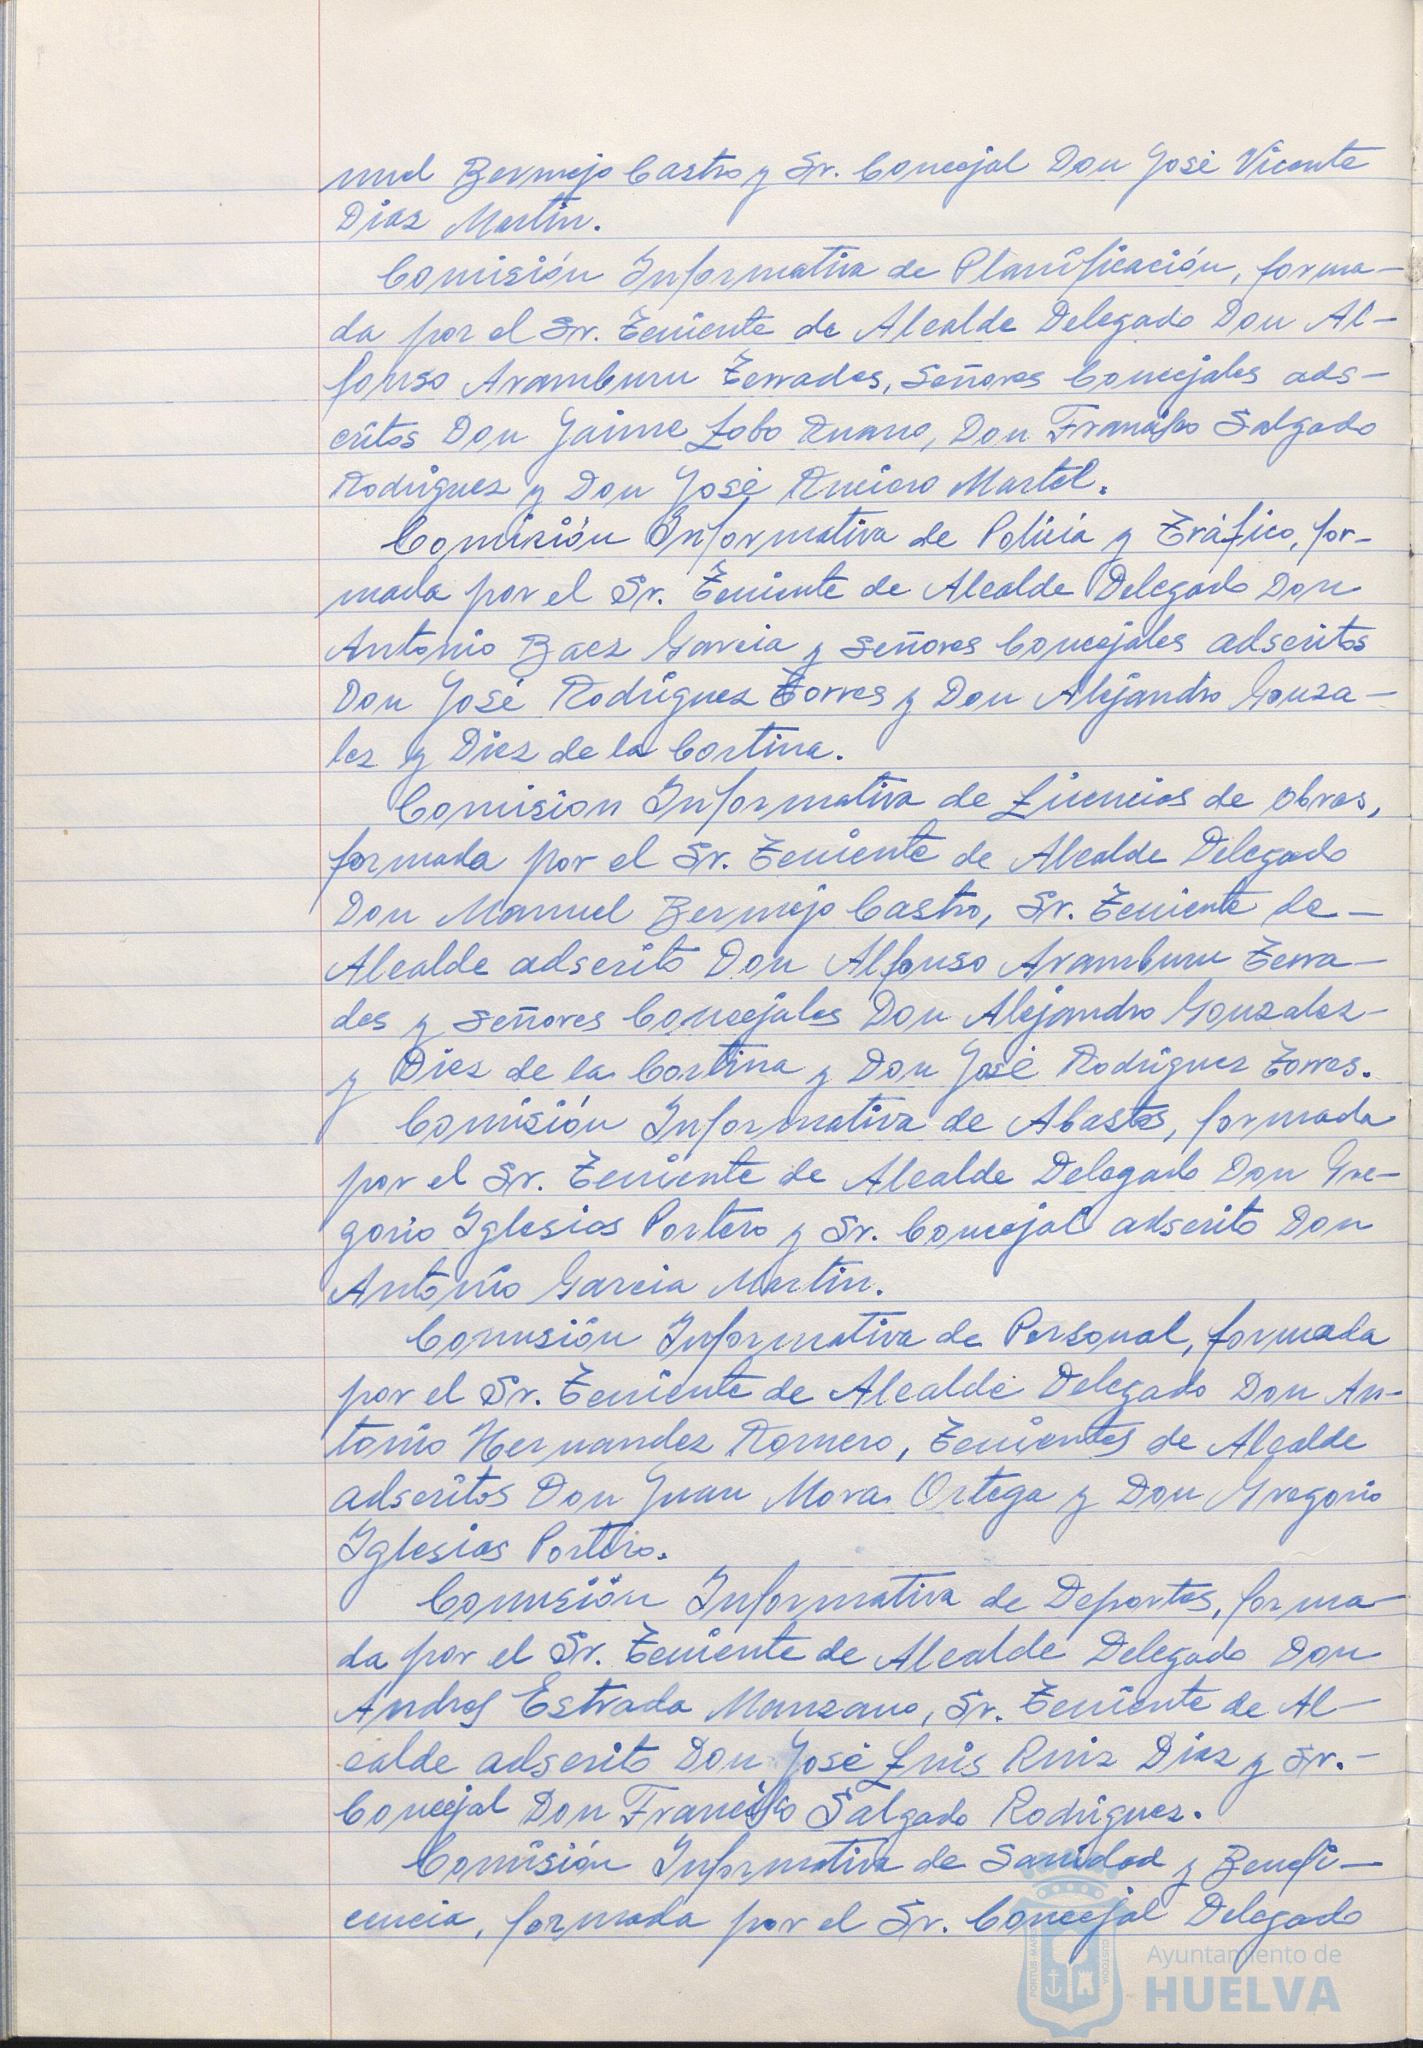 nuel Bermejo Castro y Sr. Concejal Don José Vicente
Diaz Martin.
Comisión Informativa de Planificación, forma-
da por el Sr. Teniente de Alcalde Delegado Don Al-
fonso Aramburu Terrades, Señores Concejales ads-
critos Don Jaime Lobo Ruano, Don Francisco Salgado
Rodriguez y Don José Rucioro Martel.
Comisión Informativa de Policia y Tráfico, for-
mada por el Sr. Teniente de Alcalde Delegado Don
Antonio Baez Garcia y Señores Concejales adscritos
Don José Rodriguez Torres y Don Alejandro Gonza-
lez y Diez de la Cortina.
Comision Informativa de Licencias de obras,
formada por el Sr. Teniente de Alcalde Delegado
Don Manuel Bermejo Castro, Sr. Teniente de-
Alcalde adscrito Don Alfonso Aramburu Terra-
des y Señores Concejales Don Alejandro Gonzalez-
y Diez de la Cortina y Don José Rodriguez Torres.
Comisión Informativa de Abastos, formada
por el Sr. Teniente de Alcalde Delegado Don Gre-
gorio Iglesias Portero y Sr. Concejal adscrito Don
Antonio Garcia Martin.
Comisión Informativa de Personal, formada
por el Sr. Teniente de Alcalde Delegado Don An-
tonio Hernandez Romero, Tenientes de Alcalde
adscritos Don Juan Mora Ortega y Don Gregorio
Iglesias Portero.
Comisión Informativa de Deportes, forma-
da por el Sr. Teniente de Alcalde Delegado Don
Andres Estrada Manzano, Sr. Teniente de Al-
calde adscrito Don José Luis Ruiz Diaz y Sr.-
Concejal Don Francisco Salgado Rodriguez.
Comisión Informativa de Sanidad y Benefi-
cencia, formada por el Sr. Concejal Delegado
Ayuntamiento de
HUELVA